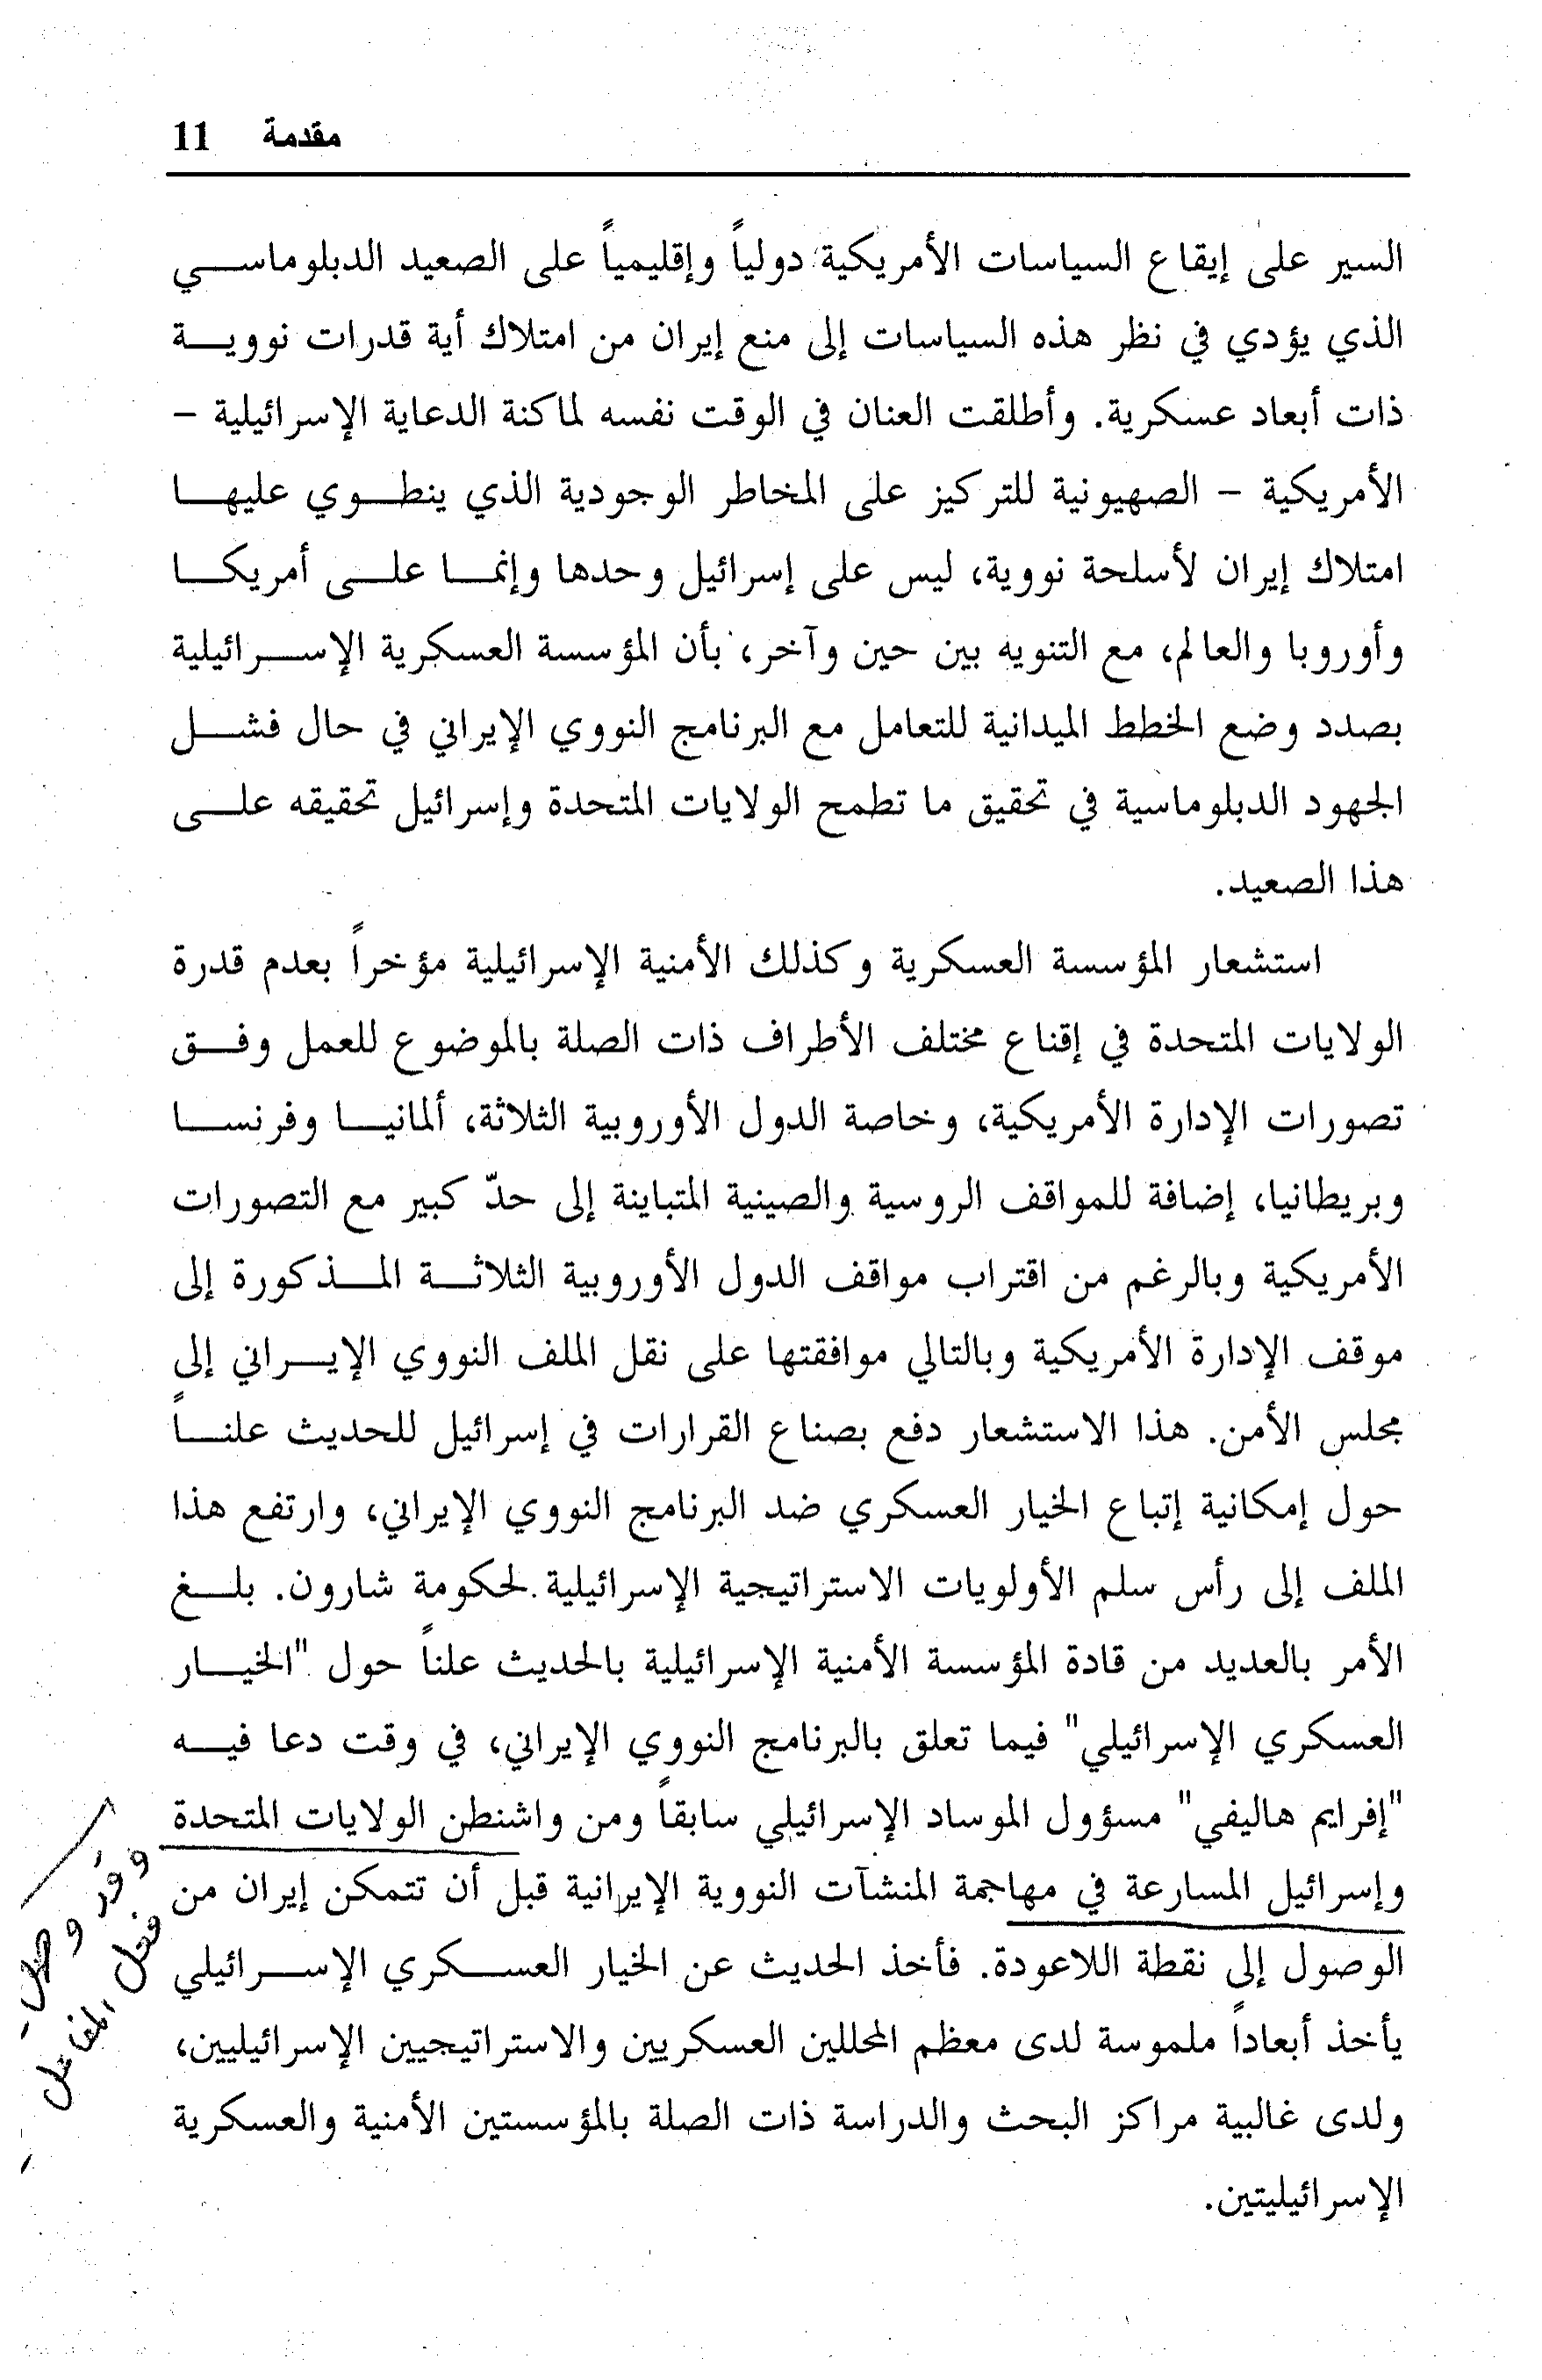 مقدمة 11
السير على إيقاع السياسات الأمريكية دولياً وإقليمياً على الصعيد الدبلوماسي
الذي يؤدي في نظر هذه السياسات إلى منع إيران من امتلاك أية قدرات نووية
ذات أبعاد عسكرية. وأطلقت العنان في الوقت نفسه لماكنة الدعاية الإسرائيلية –
الأمريكية – الصهيونية للتركيز على المخاطر الوجودية الذي ينطوي عليها
امتلاك إيران لأسلحة نووية، ليس على إسرائيل وحدها وإنما على أمريكا
وأوروبا والعالم، مع التنويه بين حين وآخر، بأن المؤسسة العسكرية الإسرائيلية
بصدد وضع الخطط الميدانية للتعامل مع البرنامج النووي الإيراني في حال فشل
الجهود الدبلوماسية في تحقيق ما تطمح الولايات المتحدة وإسرائيل تحقيقه على
هذا الصعيد.
استشعار المؤسسة العسكرية وكذلك الأمنية الإسرائيلية مؤخراً بعدم قدرة
الولايات المتحدة في إقناع مختلف الأطراف ذات الصلة بالموضوع للعمل وفق
تصورات الإدارة الأمريكية، وخاصة الدول الأوروبية الثلاثة، ألمانيا وفرنسا
وبريطانيا، إضافة للمواقف الروسية والصينية المتباينة إلى حدّ كبير مع التصورات
الأمريكية وبالرغم من اقتراب مواقف الدول الأوروبية الثلاثة المذكورة إلى
موقف الإدارة الأمريكية وبالتالي موافقتها على نقل الملف النووي الإيراني إلى
مجلس الأمن. هذا الاستشعار دفع بصناع القرارات في إسرائيل للحديث علناً
حول إمكانية إتباع الخيار العسكري ضد البرنامج النووي الإيراني، وارتفع هذا
الملف إلى رأس سلم الأولويات الاستراتيجية الإسرائيلية لحكومة شارون. بلغ
الأمر بالعديد من قادة المؤسسة الأمنية الإسرائيلية بالحديث علناً حول "الخيار
العسكري الإسرائيلي" فيما تعلق بالبرنامج النووي الإيراني، في وقت دعا فيه
"إفرايم هاليفي" مسؤول الموساد الإسرائيلي سابقاً ومن واشنطن الولايات المتحدة
وإسرائيل المسارعة في مهاجمة المنشآت النووية الإيرانية قبل أن تتمكن إيران من
الوصول إلى نقطة اللاعودة. فأخذ الحديث عن الخيار العسكري الإسرائيلي
يأخذ أبعاداً ملموسة لدى معظم المحللين العسكريين والاستراتيجيين الإسرائيليين،
ولدى غالبية مراكز البحث والدراسة ذات الصلة بالمؤسستين الأمنية والعسكرية
الإسرائيليتين.